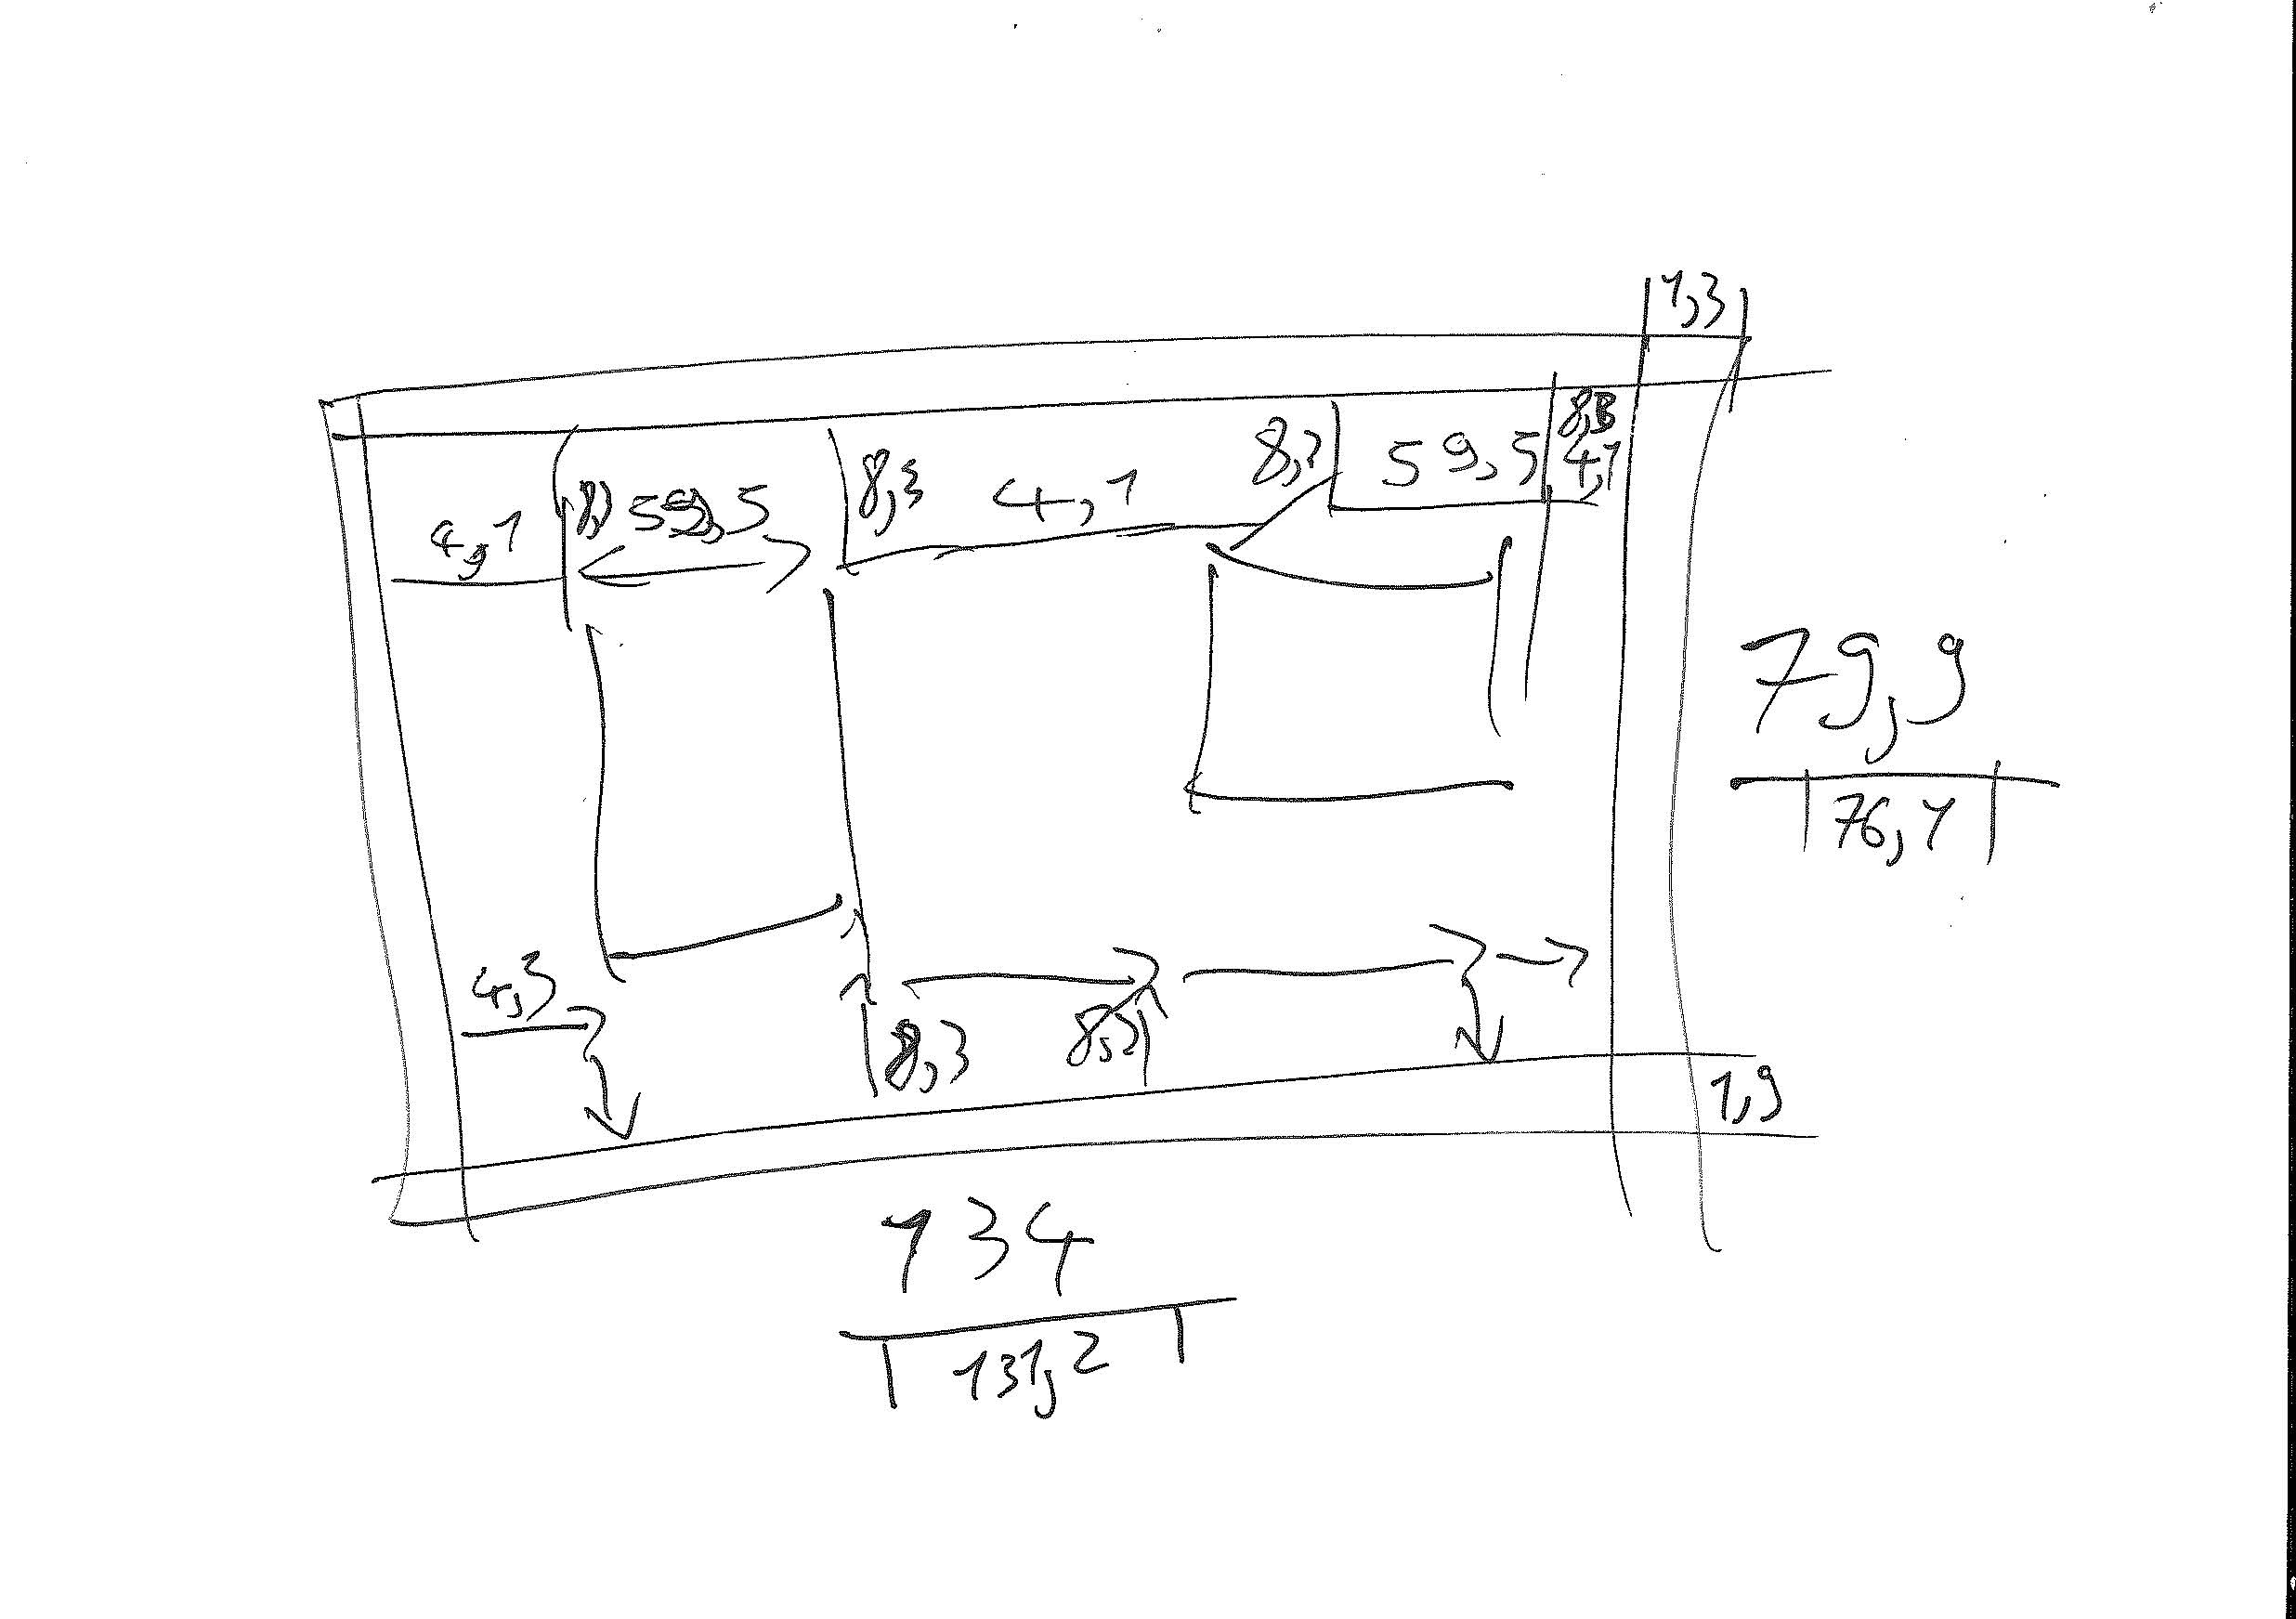 1,3
8,3
8,3 59,5 4,1
4,1 8,3 59,5 8,3 4,1
79,9
76,1
4,3
8,3 8,3
1,9
134
131,2